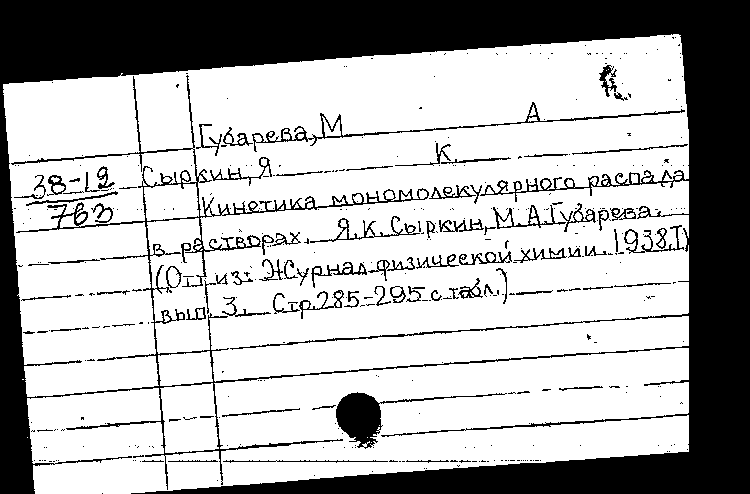 Губарева, М А
38-12
763
Сыркин, Я. К.
Кинетика мономолекулярного распада
в растворах. Я.К. Сыркин, М.А. Губарева.
(От. из: Журнал физической химии. 1938, Т.
вып. 3. Стр. 285-295 с табл.)